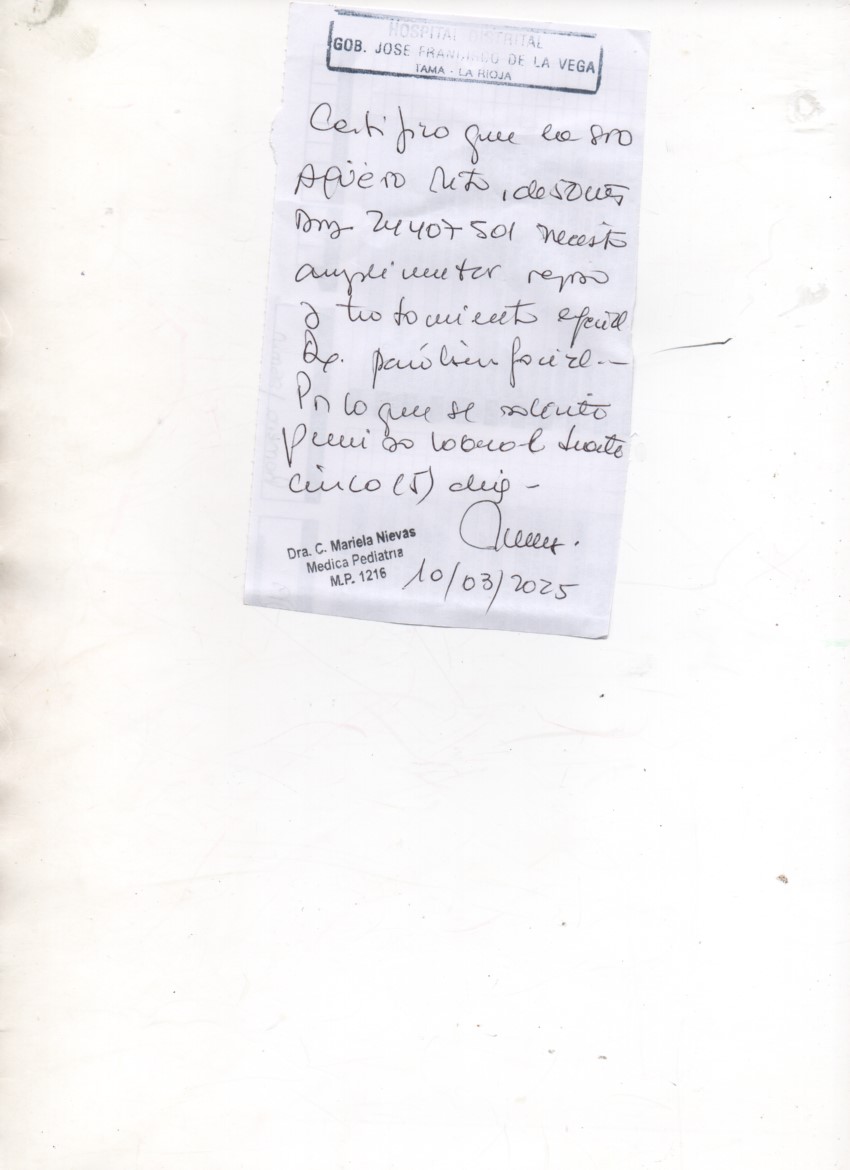 HOSPITAL DISTRITAL
GOB. JOSE FRANCISCO DE LA VEGA
TAMA - LA RIOJA
Certifico que la sra
Agüero Rita, de 50 años
DNI 24407501 necesita
cumplimentar reposo
y tratamiento especial
Dx. parálisis facial.-
Por lo que se solicita
permiso laboral durante
cinco (5) días -
Dra. C. Mariela Nievas
Medica Pediatria
M.P. 1216
10/03/2025